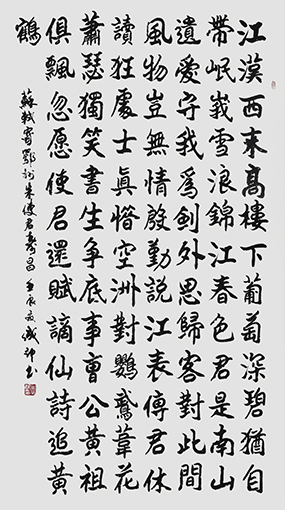 江漢西來高樓下蒲萄深碧猶自
帶岷峩雪浪錦江春色君是南山
遺愛守我為劍外思歸客對此間
風物豈無情殷勤說江表傳君休
讀狂處士真愔空洲對鸚鵡葦花
蕭瑟獨笑書生爭底事曹公黃祖
俱飄忽愿使君還賦謫仙詩追黃
鶴
蘇軾寄鄂州朱使君壽昌 壬辰夜